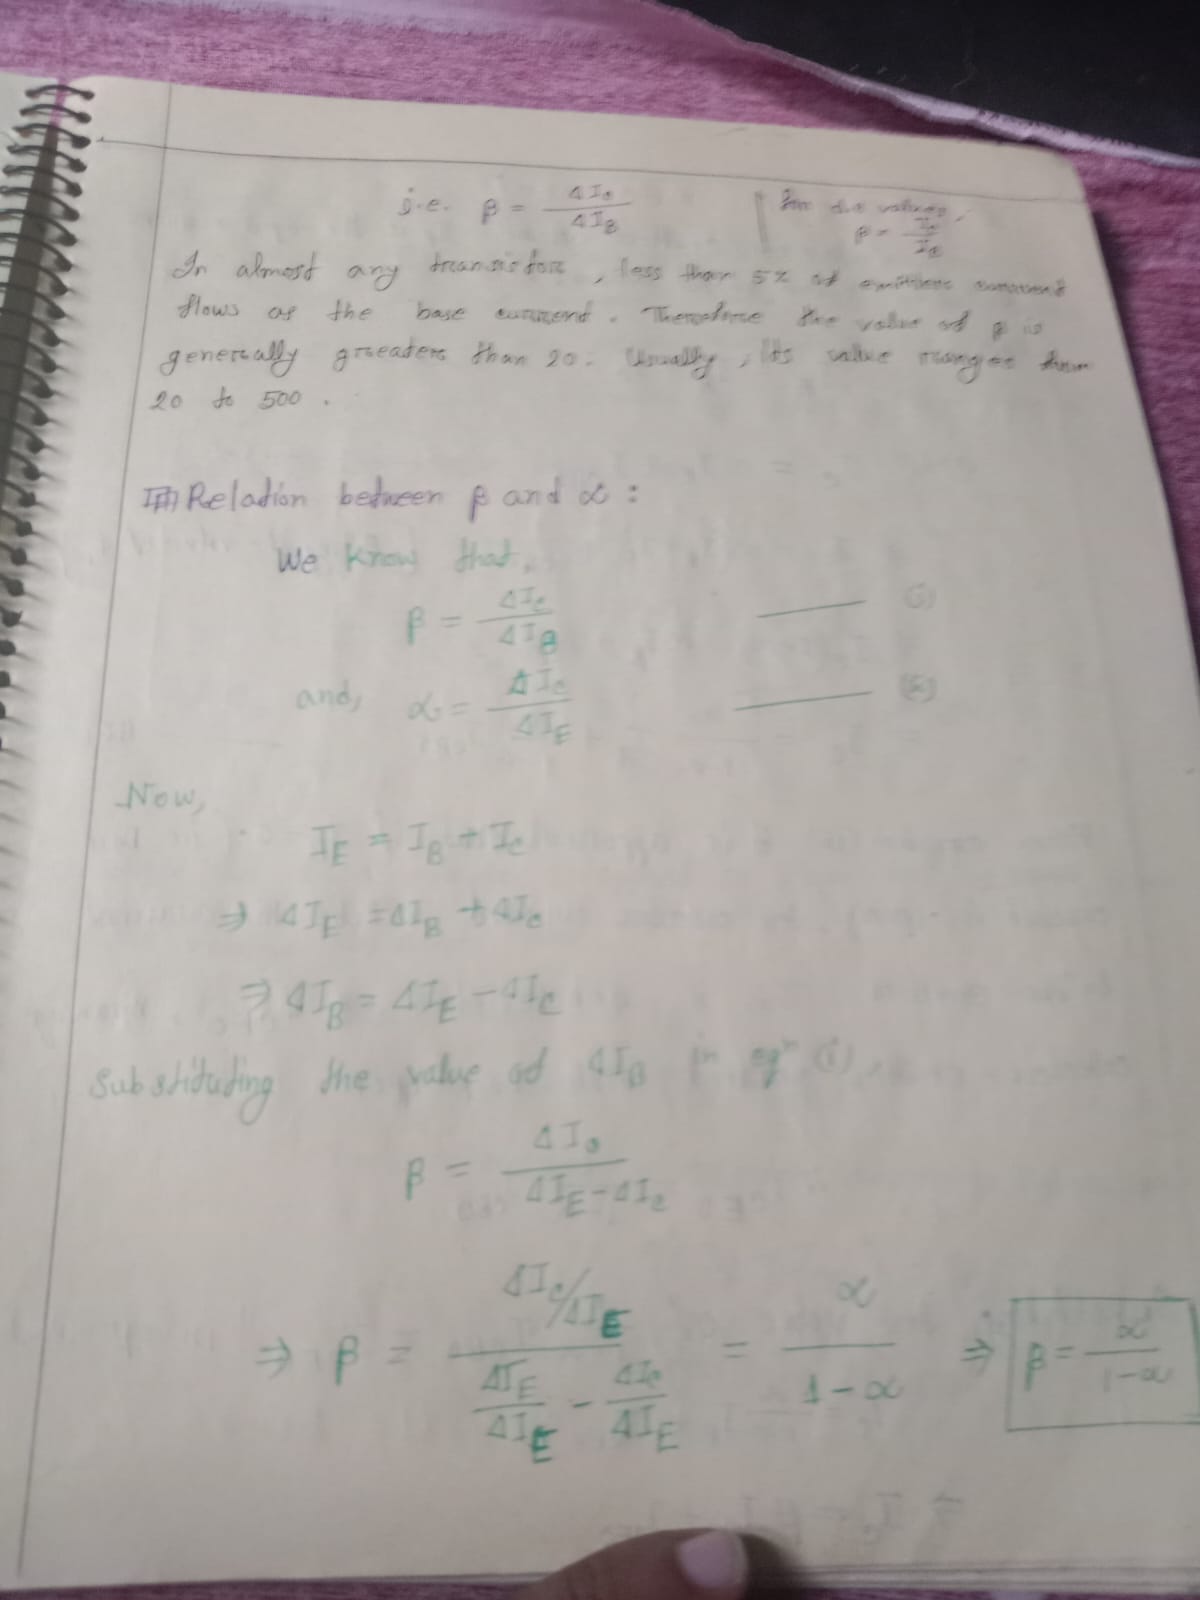 i.e. β = ΔIc / ΔIB
for d.c values,
β = Ic / IB
In almost any transistor, less than 5% of emitter current
flows as the base current. Therefore the value of β is
generally greater than 20. Usually, its value ranges from
20 to 500.
Relation between β and α :
We know that,
β = ΔIc / ΔIB ——— (i)
and, α = ΔIc / ΔIE ——— (ii)
Now,
IE = IB + Ic
⇒ ΔIE = ΔIB + ΔIc
⇒ ΔIB = ΔIE - ΔIc
Substituting the value of ΔIB in eqn (i),
β = ΔIc / ΔIE - ΔIc
⇒ β = ΔIc/ΔIE / ΔIE/ΔIE - ΔIc/ΔIE = α / 1-α ⇒ β = α / 1-α